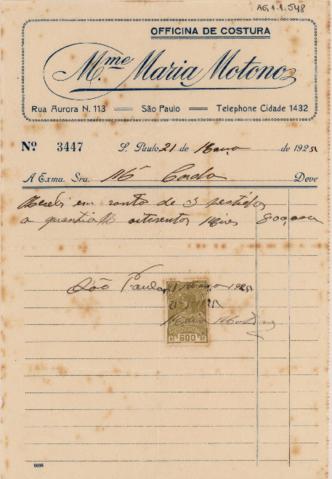 AG.1.1.548
OFFICINA DE COSTURA
M.me Maria Motono
Rua Aurora N. 113 — São Paulo — Telephone Cidade 1432
Nº 3447 S. Paulo, 21 de Março de 192
A Exma. Sra. Deve
Recebi em conta de 3 vestidos
a quantia oitocentos Reis 800,000
São Paulo, 21 Março 192
21
Maria Motono
600